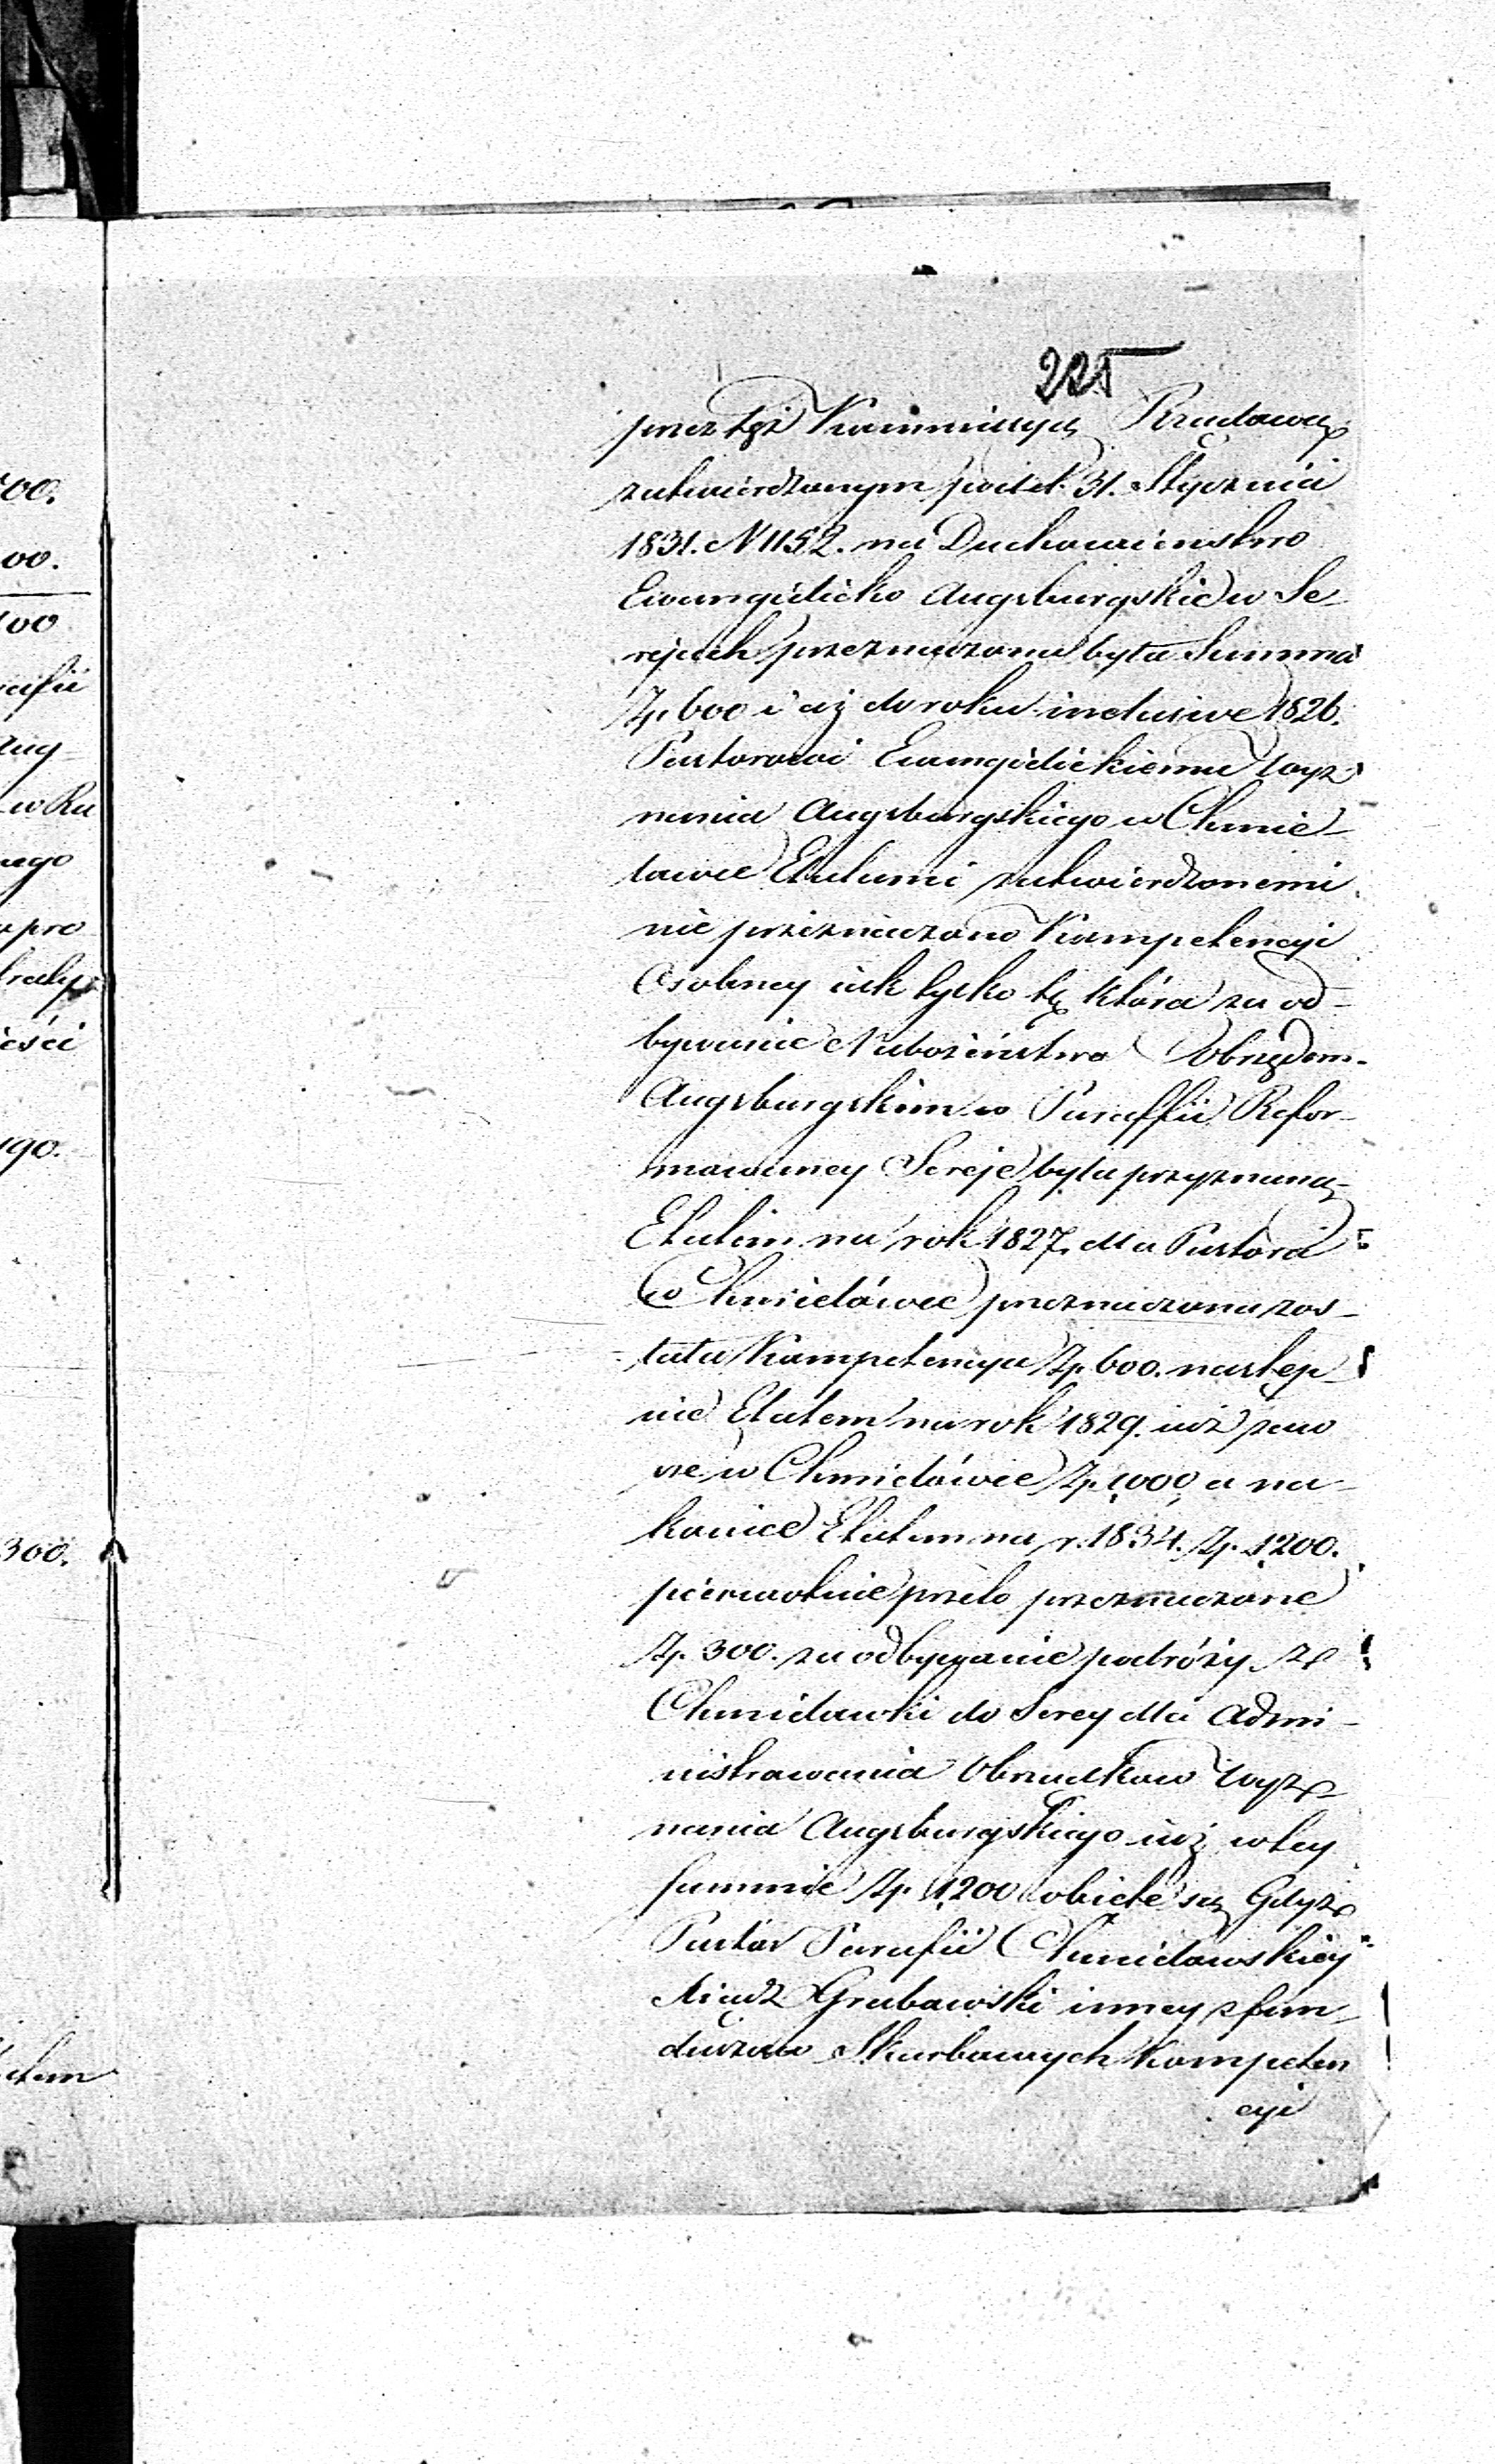 225
przez tęż Kommissyą Rządową
zatwierdzonym pod d. 31. Stycznia
1831. N 1152. na Duchowieństwo
Ewangielicko Augsburgskie w Se-
rejach przeznaczona była Summa
Zp. 600 i aż do roku inclusive 1826.
Pastorowi Ewangielickiemu Wyz-
nania Augsburgskiego w Chmie-
lowce Etatami zatwierdzonemi
nie przeznaczano Kompetencyi
Osobney iak tylko tę która za od-
bywanie Nabożeństwa Obrzędem
Augsburgskim w Paraffii Refor-
mowaney Sereje była przyznaną
Etatem na rok 1827. dla Pastora
w Chmielówce przeznaczona zos-
tała Kompetencya Zp. 600. nastep-
nie Etatem na rok 1829. już
w Chmielówce Zp. 1000 a na-
koniec Etatem na r. 1834. Zp. 1200.
pierwotnie przeto przeznaczone
Zp. 300. za odbywanie podróży z
Chmielowki do Serey dla Admi-
nistrowania Obrządkow Wyz-
nania Augsburgskiego iuż w tey
summie Zp. 1200 obięte są Gdyż
Pastor Parafii Chmielowskiey
Xiądz Grabowski inney z fun-
duszow Skarbowych Kompeten
cyi
00.
00.
100
rafii
Aug-
w Ru
nego
pro
eści
ego.
300.
etem